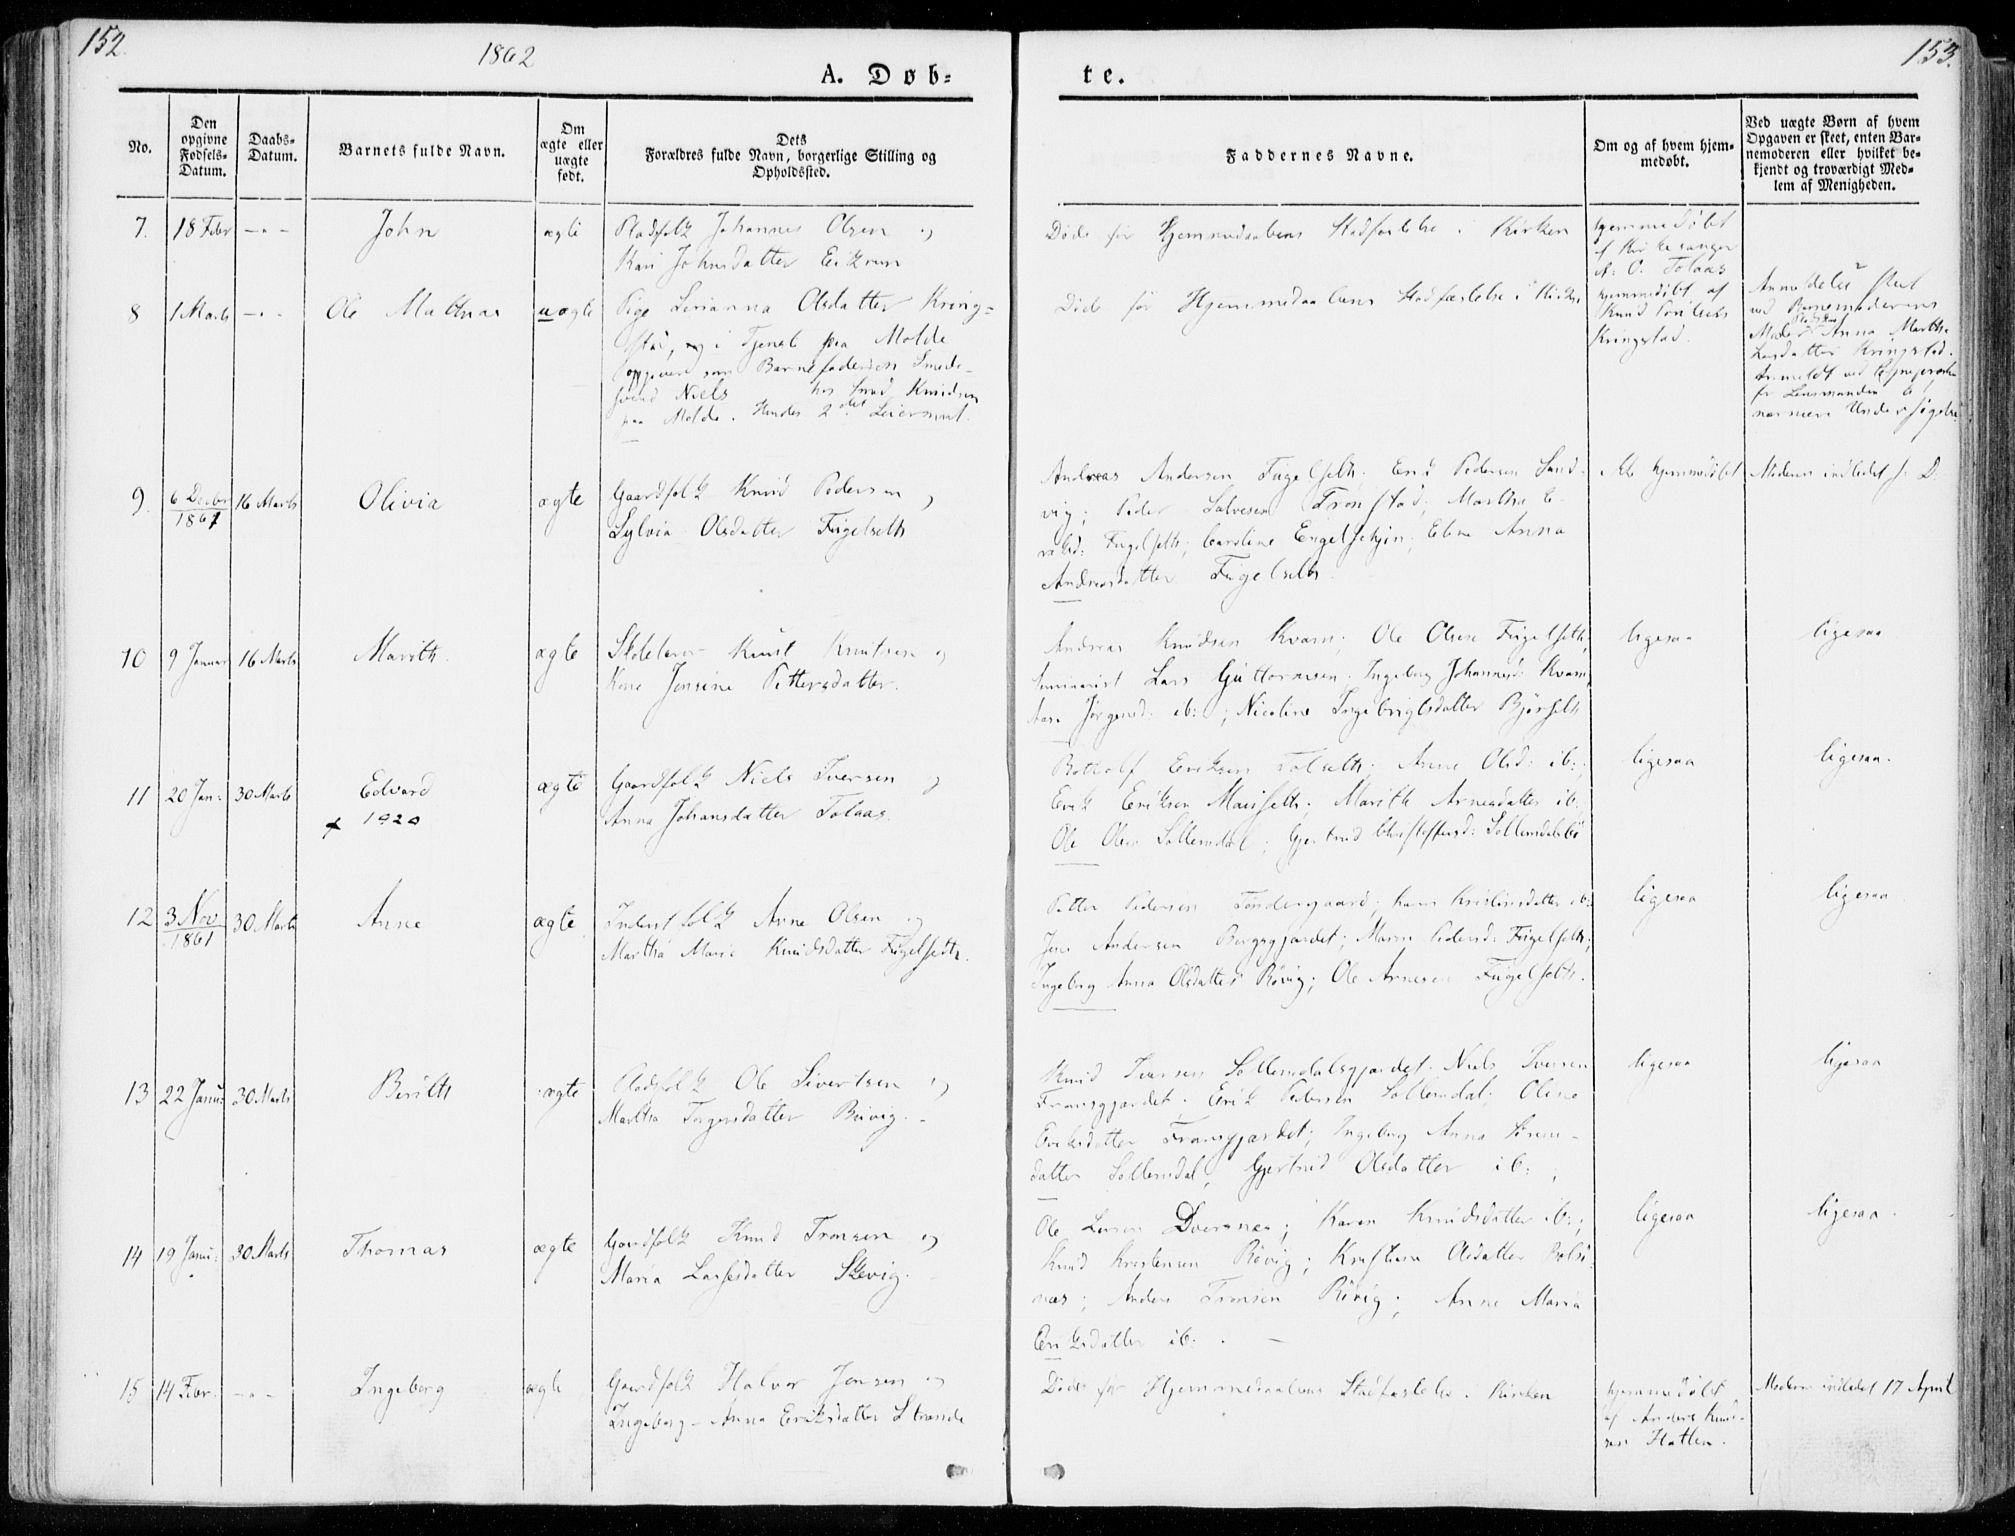 152.
1862
153.
A. Døb=
te.
No.
Den
opgivne
Fødsels-
Datum.
Daabs-
Datum.
Barnets fulde Navn.
Om
ægte eller
uægte
født.
Dets
Forældres fulde Navn, borgerlige Stilling og
Opholdssted.
Faddernes Navne.
Om og af hvem hjem-
medøbt.
Ved uægte Børn af hvem
Opgaven er skeet, enten Bar-
nemoderen eller hvilket be-
kjendt og troværdigt Med-
lem af Menigheden.
7.
18 Febr
John
ægte
Pladsfolk Johannes Olsen og
Kari Johnsdatter Eikrem
Døde før Hjemmedaabens Stadfæstelse i Kirken
hjemmedøbt
af Kirkesanger
A. O. Tolaas
8
1 Marts
Ole Mathias
uægte
Pige Olsdatter Kring-
stad, i Tjeneste paa Molde
opgiver som Barnefaderen Smede-
svend Niels hos Smed Knudsen
paa Molde. Hendes 2det Leiermaal.
Døde før Hjemmedaabens Stadfæstelse i Kirken
hjemmedøbt af
Knud
Kringstad.
Anmeldelse skeet
ved Barnemoderens
Moder Anna Martha
Larsdatter Kringstad.
Anmeldt ved
for Lensmanden til
nærmere Undersøgelse
9.
6 Decbr
1861
16 Marts
Olivia
ægte
Gaardfolk Knud Pedersen og
Sylvia Olsdatter Fugelseth
Andreas Andersen Fugelseth. Erik Pedersen Sand-
vig; Peder Salvesen Tronstad; Martha E-
riksd: Fugelseth; Caroline Elene Anna
Andreasdatter Fugelseth.
Ikke hjemmedøbt
Moderen indledet s. D.
10
9 Januar
16 Marts
Marith.
ægte
Skolelærer Knut Knutsen og
Kone Jensine Pettersdatter.
Andreas Knudsen Kvam; Ole Olsen Fugelseth;
Seminarist Lars Guttormsen. Ingeborg Johannesd: Kvam;
Jørgensd: ib: ; Nicoline Ingebrigtsdatter Bjørseth
ligesaa
ligesaa
11
20 Jan:
30 Marts
Edvard
+ 1920
ægte
Gaardfolk Niels Iversen og
Anna Johansdatter Tolaas.
Eriksen Anne Olsd: ib:;
Erik Eriksen Mariseth; Marith Arnesdatter ib:
Ole Olsen Sollemdal; Gjertrud Christoffersd: Sollemdalsbø
ligesaa
ligesaa.
12
3 Nov
1861
30 Marts
Anne
ægte
Inderstfolk Arne Olsen og
Martha Marie Knudsdatter Fugelseth.
Petter Pedersen Tøndergaard; Karen Kristinsdatter ib:
Jens Andersen Bergsgjærdet; Maren Pedersd: Fugelseth;
Ingeborg Anna Olsdatter Røvig; Ole Arnesen Fugelseth.
ligesaa
ligesaa
13
22 Janu:
30 Marts
Berith
ægte
Pladsfolk Ole Sivertsen og
Martha Torgersdatter Røvig.
Knud Iversen Sollemdalsgjærdet. Niels Iversen
Fransgjærdet; Erik Pedersen Sollemdal; Oline
Eriksdatter Fransgjærdet; Ingeborg Anna Ivers-
datter Sollemdal; Gjertrud Olsdatter ib: ;
ligesaa
ligesaa
14
19 Janu:
30 Marts
Thomas
ægte
Gaardfolk Knud Tronsen og
Maria Lassesdatter Skevig.
Ole Larsen Dversnes; Karen Knudsdatter ib:;
Knud Kristensen Røvig; Kristiane Olsdatter Bolsø-
næs; Anders Tronsen Røvig; Anne Maria
Eriksdatter ib: .
ligesaa
ligesaa.
15
14 Febr.
Ingeborg
ægte
Gaardfolk Halvor Jensen og
Ingeborg-Anna Eriksdatter Strande
Døde før Hjemmedaabens Stadfæstelse i Kirken
hjemmedøbt
af Anders Knud-
sen Hatlen.
Moderen indledet 17 April